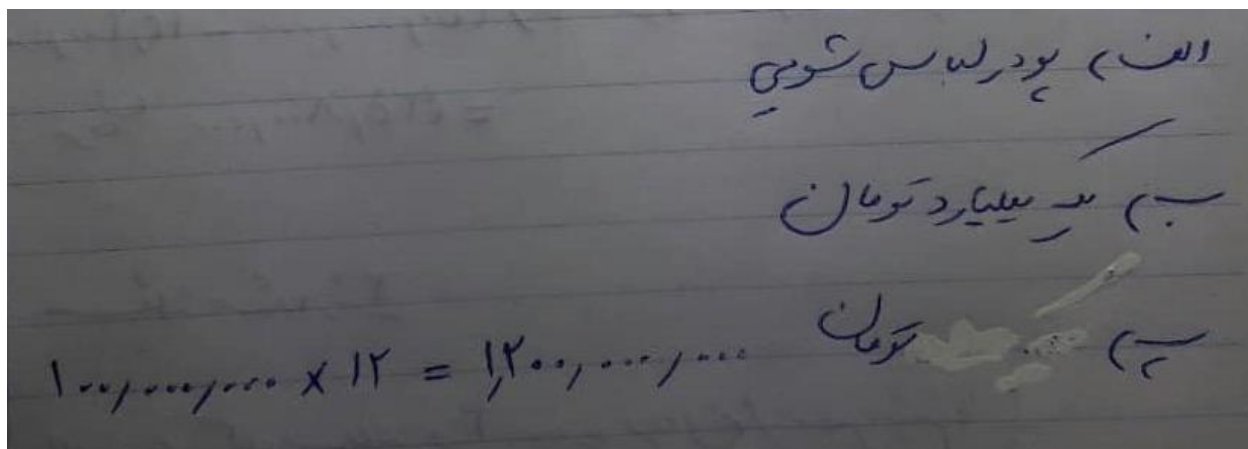 الف) پودر لباس شویی
ب) یک میلیارد تومان
پ) تومان
۱۰۰,۰۰۰,۰۰۰ × ۱۲ = ۱,۲۰۰,۰۰۰,۰۰۰